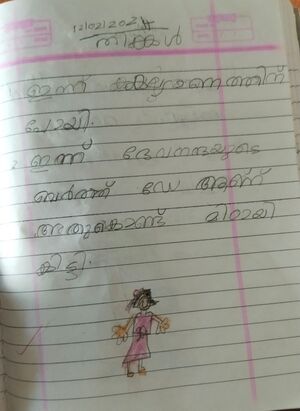 12/02/2024
തിങ്കൾ
1. ഇന്ന് കല്ല്യാണത്തിന്
പോയി.
2. ഇന്ന് ദേവനന്ദയുടെ
ബർത്ത് ഡേ ആണ്
അതുകൊണ്ട് മിഠായി
കിട്ടി.